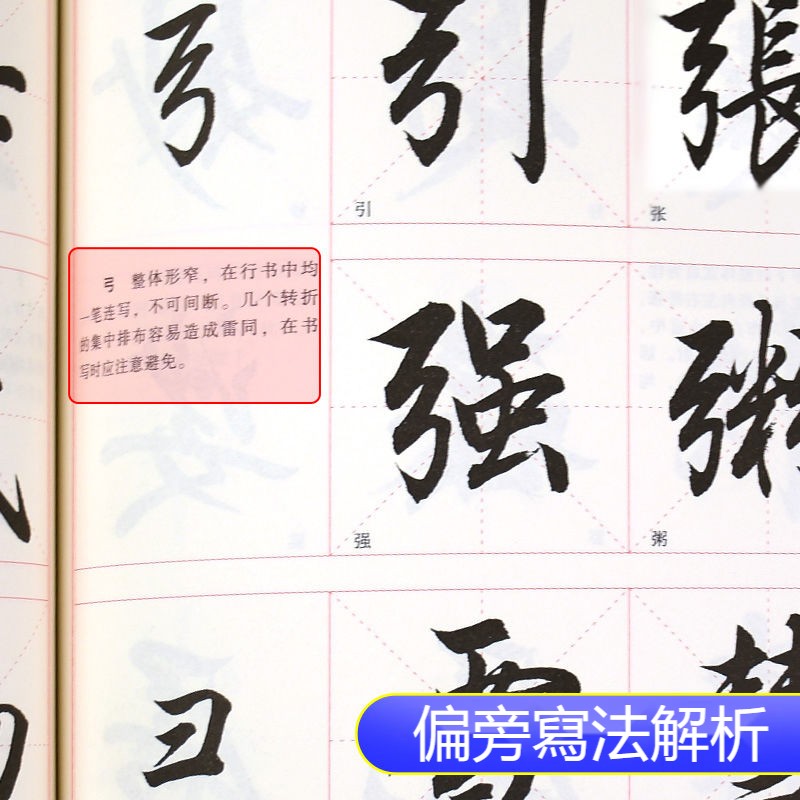 弓
引
張
引
张
弓 整体形窄，在行书中均
一笔连写，不可间断。几个转折
的集中排布容易造成雷同，在书
写时应注意避免。
强
粥
强
粥
彐
偏旁寫法解析